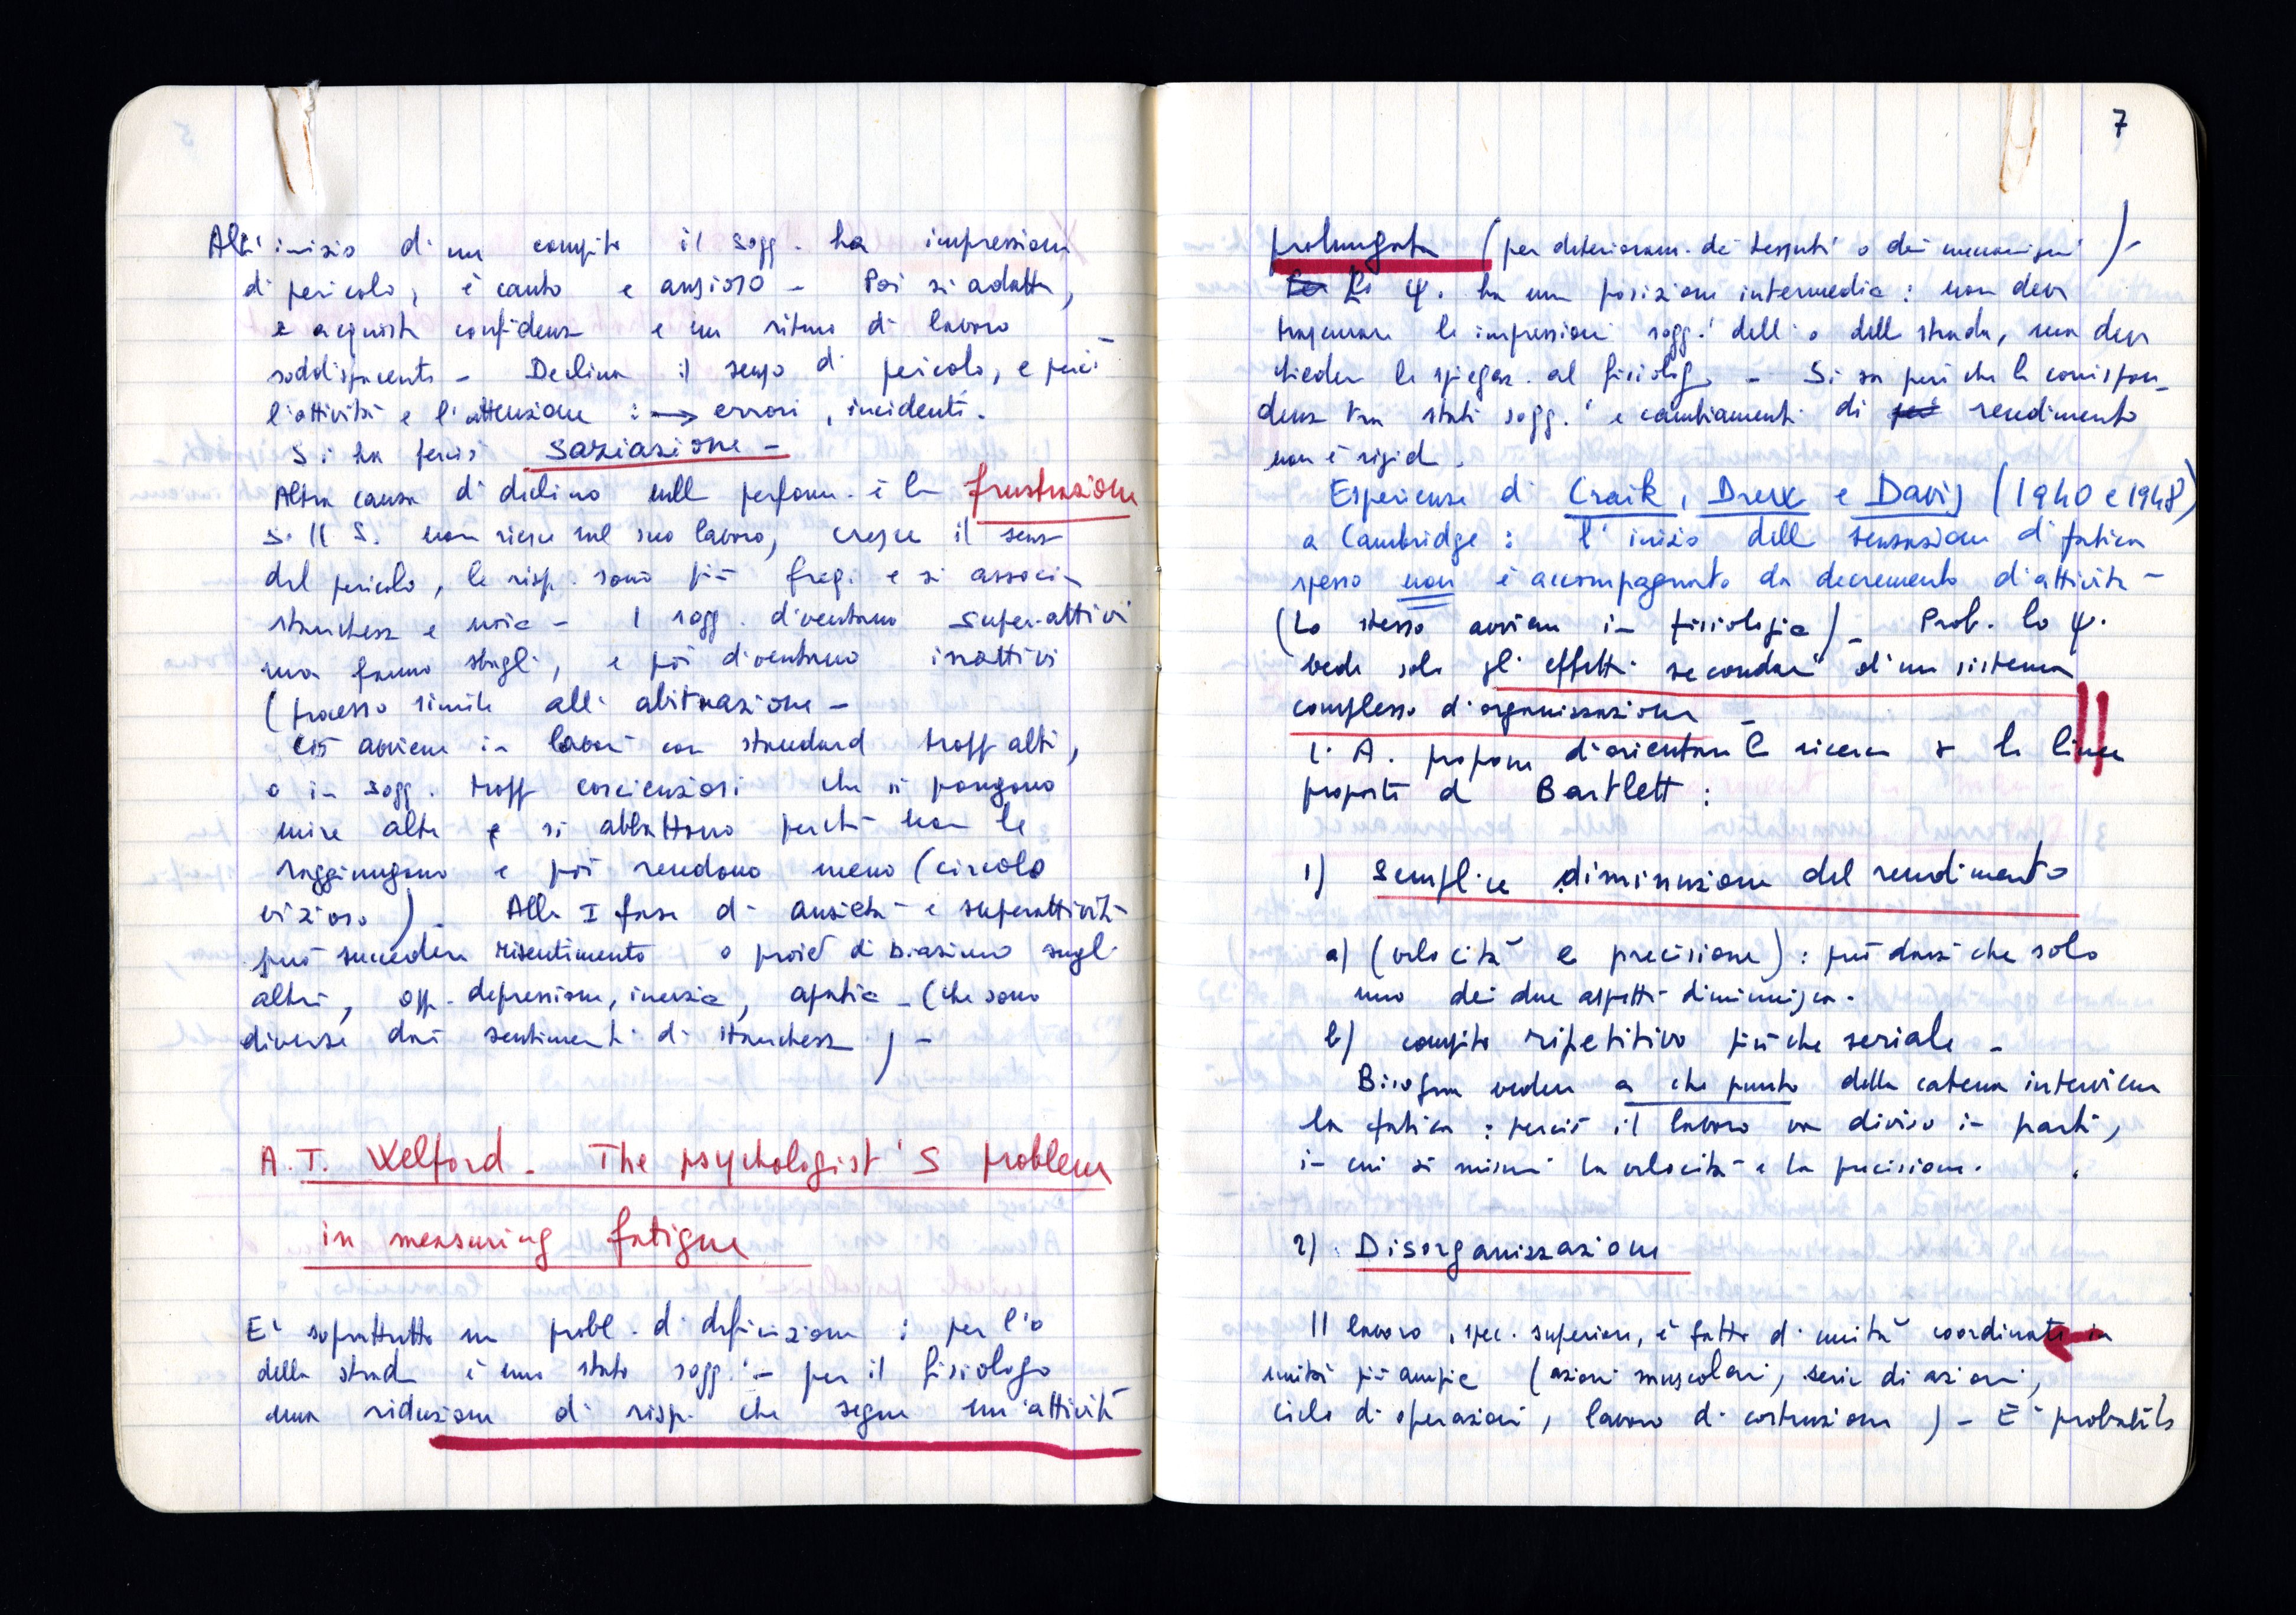 All'inizio di un compito il sogg. ha impressione
di pericolo, è cauto e ansioso - Poi si adatta,
e acquista confidenza e un ritmo di lavoro
soddisfacente - Declina il senso di pericolo, e perciò
l'attività e l'attenzione : → errori, incidenti.
Si ha perciò saziazione -
Altra causa di declino nella perform. è la frustrazione
Se il S. non riesce nel suo lavoro, cresce il senso
del pericolo, le risp. sono più freq. e si associa
stanchezza e noia - I sogg. diventano super-attivi
ma fanno sbagli, e poi diventano inattivi
(processo simile all'abituazione -
Ciò avviene in lavori con standard tropp alti,
o in sogg. tropp coscienziosi che si pongono
mire alte e si abbattono perché non le
raggiungono e poi rendono meno (circolo
vizioso). Alla I fase di ansietà e superattività
può succedere risentimento o proiez di biasimo sugli
altri, opp. depressione, inerzia, apatia - (che sono
diverse dai sentimenti di stanchezza) -
A.T. Welford - The psychologist's problem
in measuring fatigue
E' soprattutto un probl. di definizione : per l'o
della strada è uno stato sogg. - per il fisiologo
una riduzione di risp. che segue un'attività
7
prolungata (per deterioram. dei tessuti o dei meccanismi) -
Lo ψ. ha una posizione intermedia : non deve
trascurare le impressioni sogg. dell'o della strada, ma deve
chiedere la spiegaz. al fisiologo - Si sa però che la corrispon-
denza tra stati sogg. e cambiamenti di rendimento
non è rigida.
Esperienze di Craik, Drew e Davis (1940 e 1948)
a Cambridge : l'inizio della sensazione di fatica
spesso non è accompagnato da decremento d'attività -
(Lo stesso avviene in fisiologia) - Prob. lo ψ.
vede solo gli effetti secondari di un sistema
complesso d'organizzazione -
L'A. propone d'orientare la ricerca s. le linee
proposte da Bartlett :
1) Semplice diminuzione del rendimento
a) (velocità e precisione) : può darsi che solo
uno dei due aspetti diminuisca.
b) compito ripetitivo più che seriale -
Bisogna vedere a che punto della catena interviene
la fatica : perciò il lavoro va diviso in parti,
in cui si misuri la velocità e la precisione.
2) Disorganizzazione
Il lavoro, spec. superiore, è fatto di unità coordinate in
unità più ampie (azioni muscolari, serie di azioni,
ciclo di operazioni, lavoro di costruzione) - E' probabile